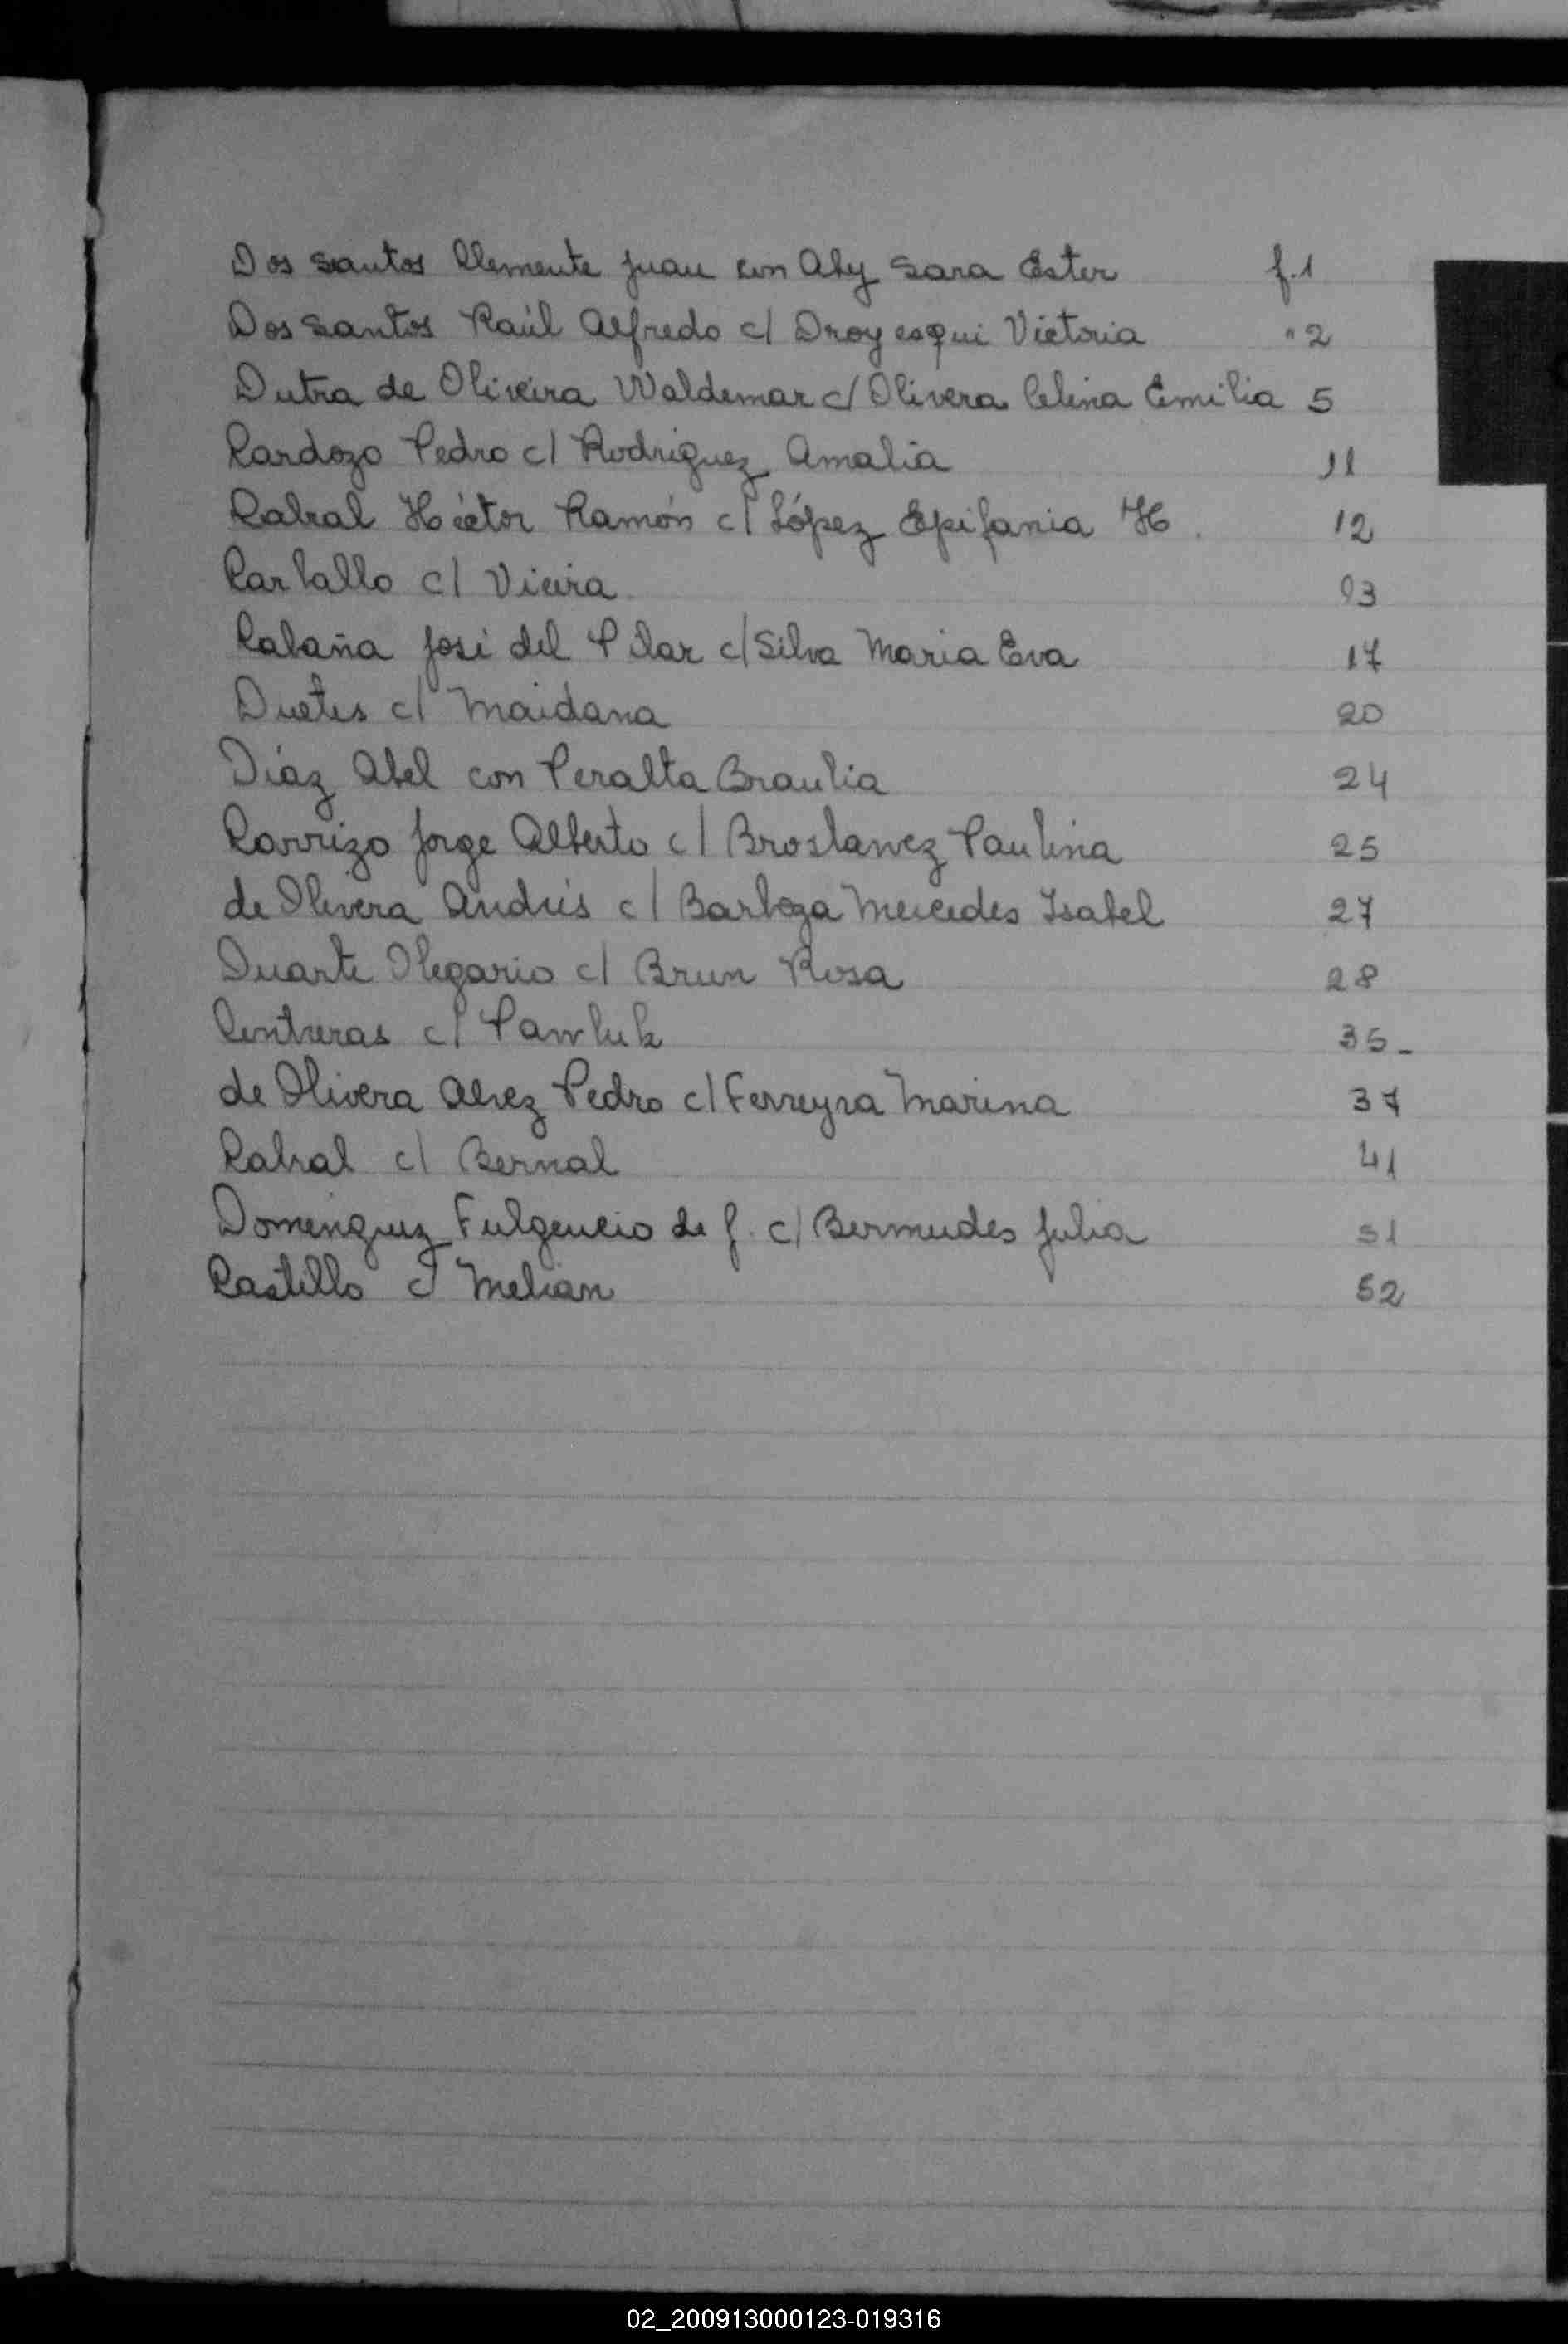 Dos Santos Clemente Juan con Aly Sara Ester f. 1
Dos Santos Raúl Alfredo c/ Droyesqui Victoria " 2
Dutra de Oliveira Waldemar c/ Olivera Celina Emilia 5
Cardozo Pedro c/ Rodriguez Amalia 11
Cabral Héctor Ramón c/ López Epifania H. 12
Carballo c/ Vieira 13
Cabaña José del Pilar c/ Silva Maria Eva 17
Duetes c/ Maidana 20
Díaz Abel con Peralta Braulia 24
Carrizo Jorge Alberto c/ Broslavez Paulina 25
de Olivera Andrés c/ Barboza Mercedes Isabel 27
Duarte Olegario c/ Brun Rosa 28
Contreras c/ Pawluk 35-
de Olivera Alvez Pedro c/ Ferreyra Marina 37
Cabral c/ Bernal 41
Dominguez Fulgencio de J. c/ Bermudes Julia 51
Castillo c/ Melian 52
02_200913000123-019316